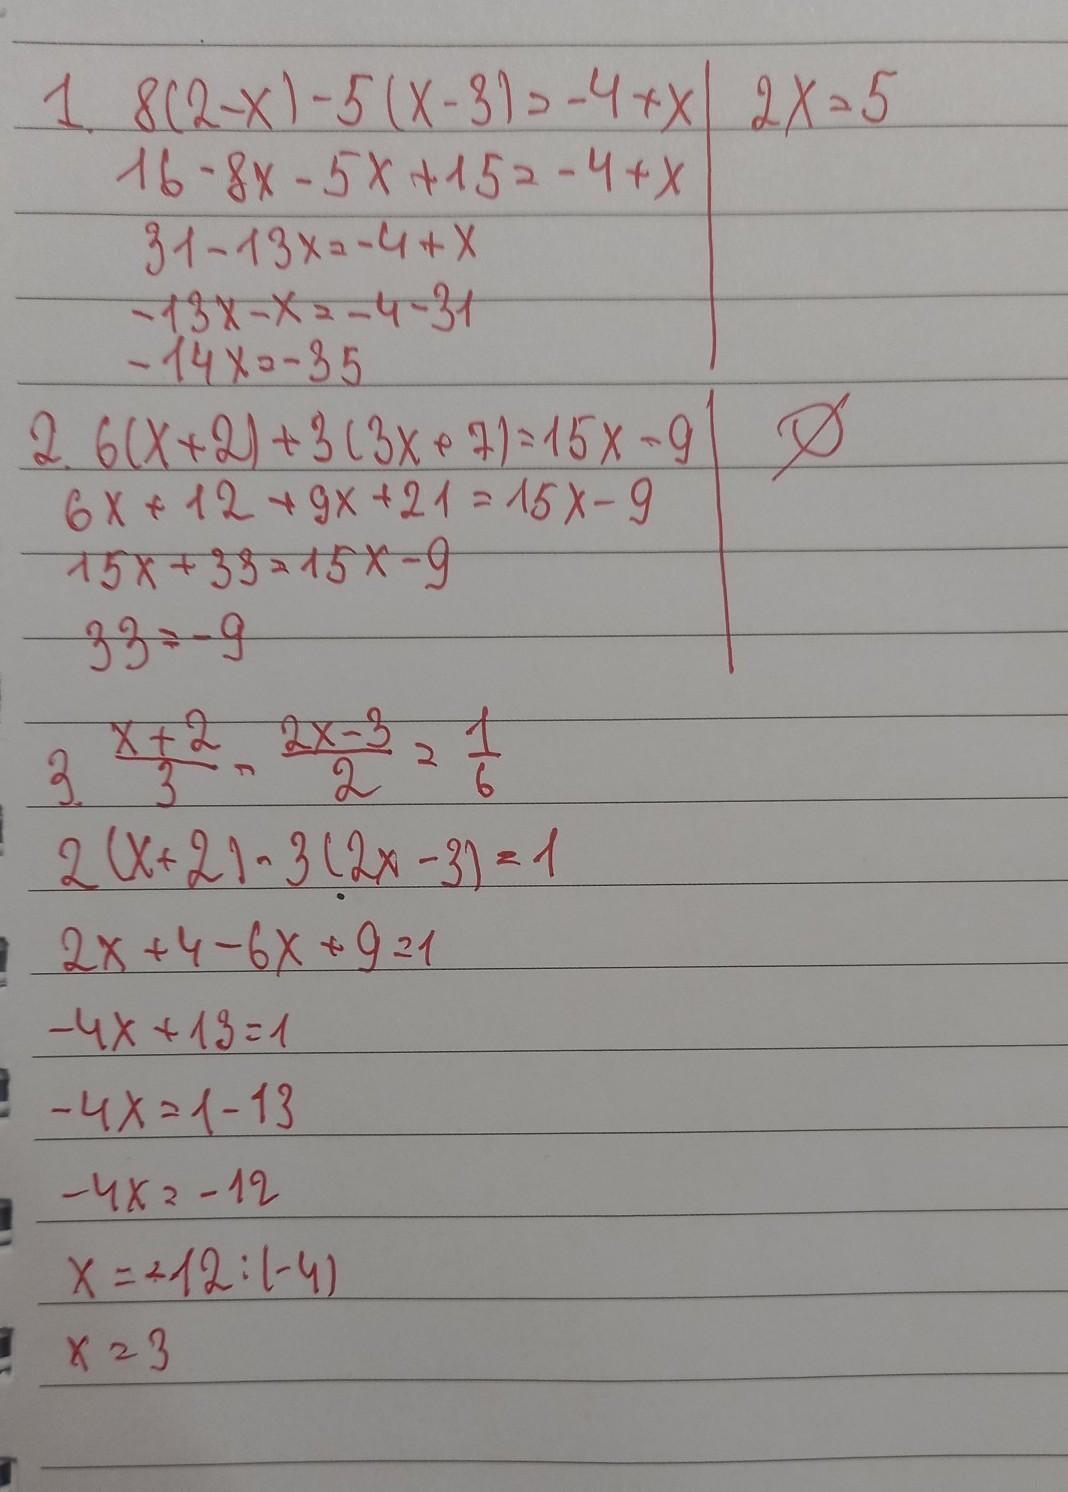 1. 8(2-x)-5(x-3)=-4+x
16-8x-5x+15=-4+x
31-13x=-4+x
-13x-x=-4-31
-14x=-35
2x=5
2. 6(x+2)+3(3x+7)=15x-9
6x+12+9x+21=15x-9
15x+33=15x-9
33=-9
∅
3. (x+2)/3 - (2x-3)/2 = 1/6
2(x+2)-3(2x-3)=1
2x+4-6x+9=1
-4x+13=1
-4x=1-13
-4x=-12
x=-12:(-4)
x=3